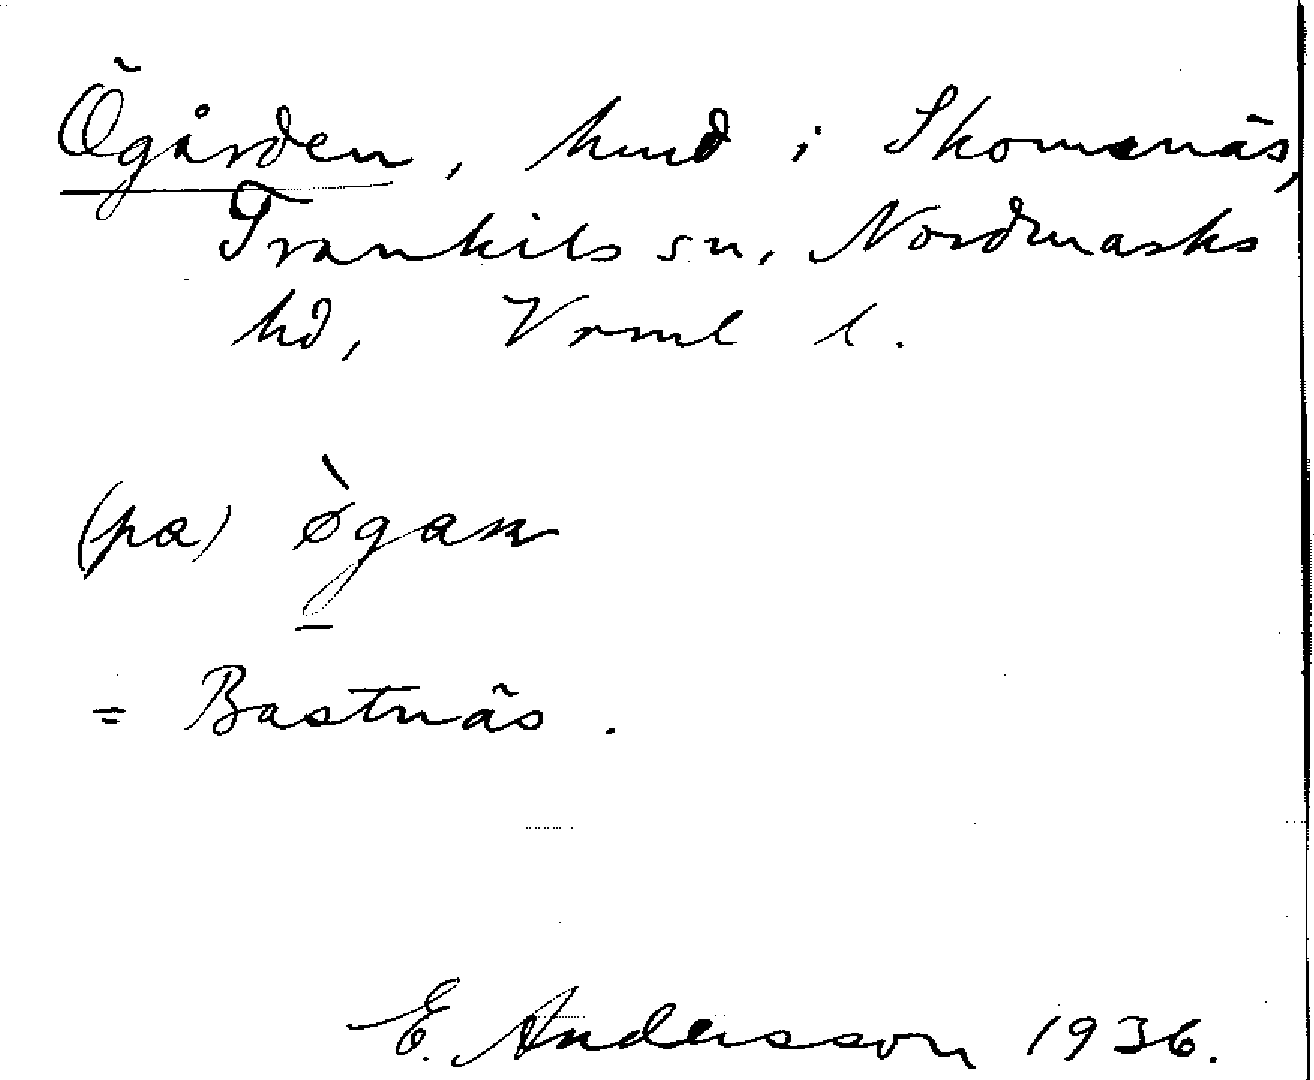 Ögården, hmd i Skomsnäs,
Trankils sn, Nordmarks
hd, Vrml l.
(pa) øgan
= Bastnäs.
E. Andersson 1936.